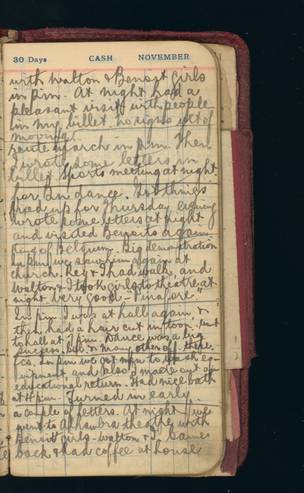 30 Days CASH NOVEMBER
with Walton & Benoit girls
in p.m. At night had a
pleasant visit with people
in my billet
route march in p.m. Then
I wrote some letters in
billet Sports meeting at night
for Bn dance. Got things
fixed up for Thursday evening
wrote some letters at night
and visited Benoits again
King of Belgium. Big demonstration
in p.m. we saw him again at
church. Key & I had walk, and
Walton & I took girls to theatre at
night. Very good - "Pinafore"
In p.m. I was at hall again, &
then had a hair cut in town. Went
to hall at 7 p.m. Dance was a big
success. Lots & many others there.
in p.m. we got men to wash
and also I made out
educational return. Had nice bath
at 4 p.m. Turned in early.
a couple of letters. At night we
went to Alhambra theatre with
Benoit girls - Walton & I. Came
back & had coffee at house